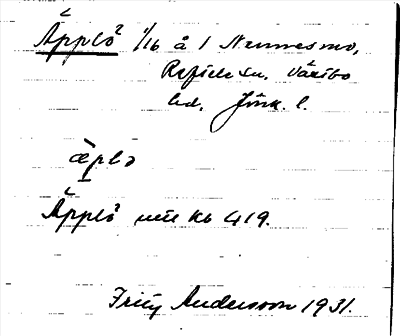 Äpplö 1/16 å 1 Nennesmo,
Reftele sn, Västbo
hd, Jönk. l.
äplə
Äpplö utu Kb 419.
Fritz Andersson 1931.